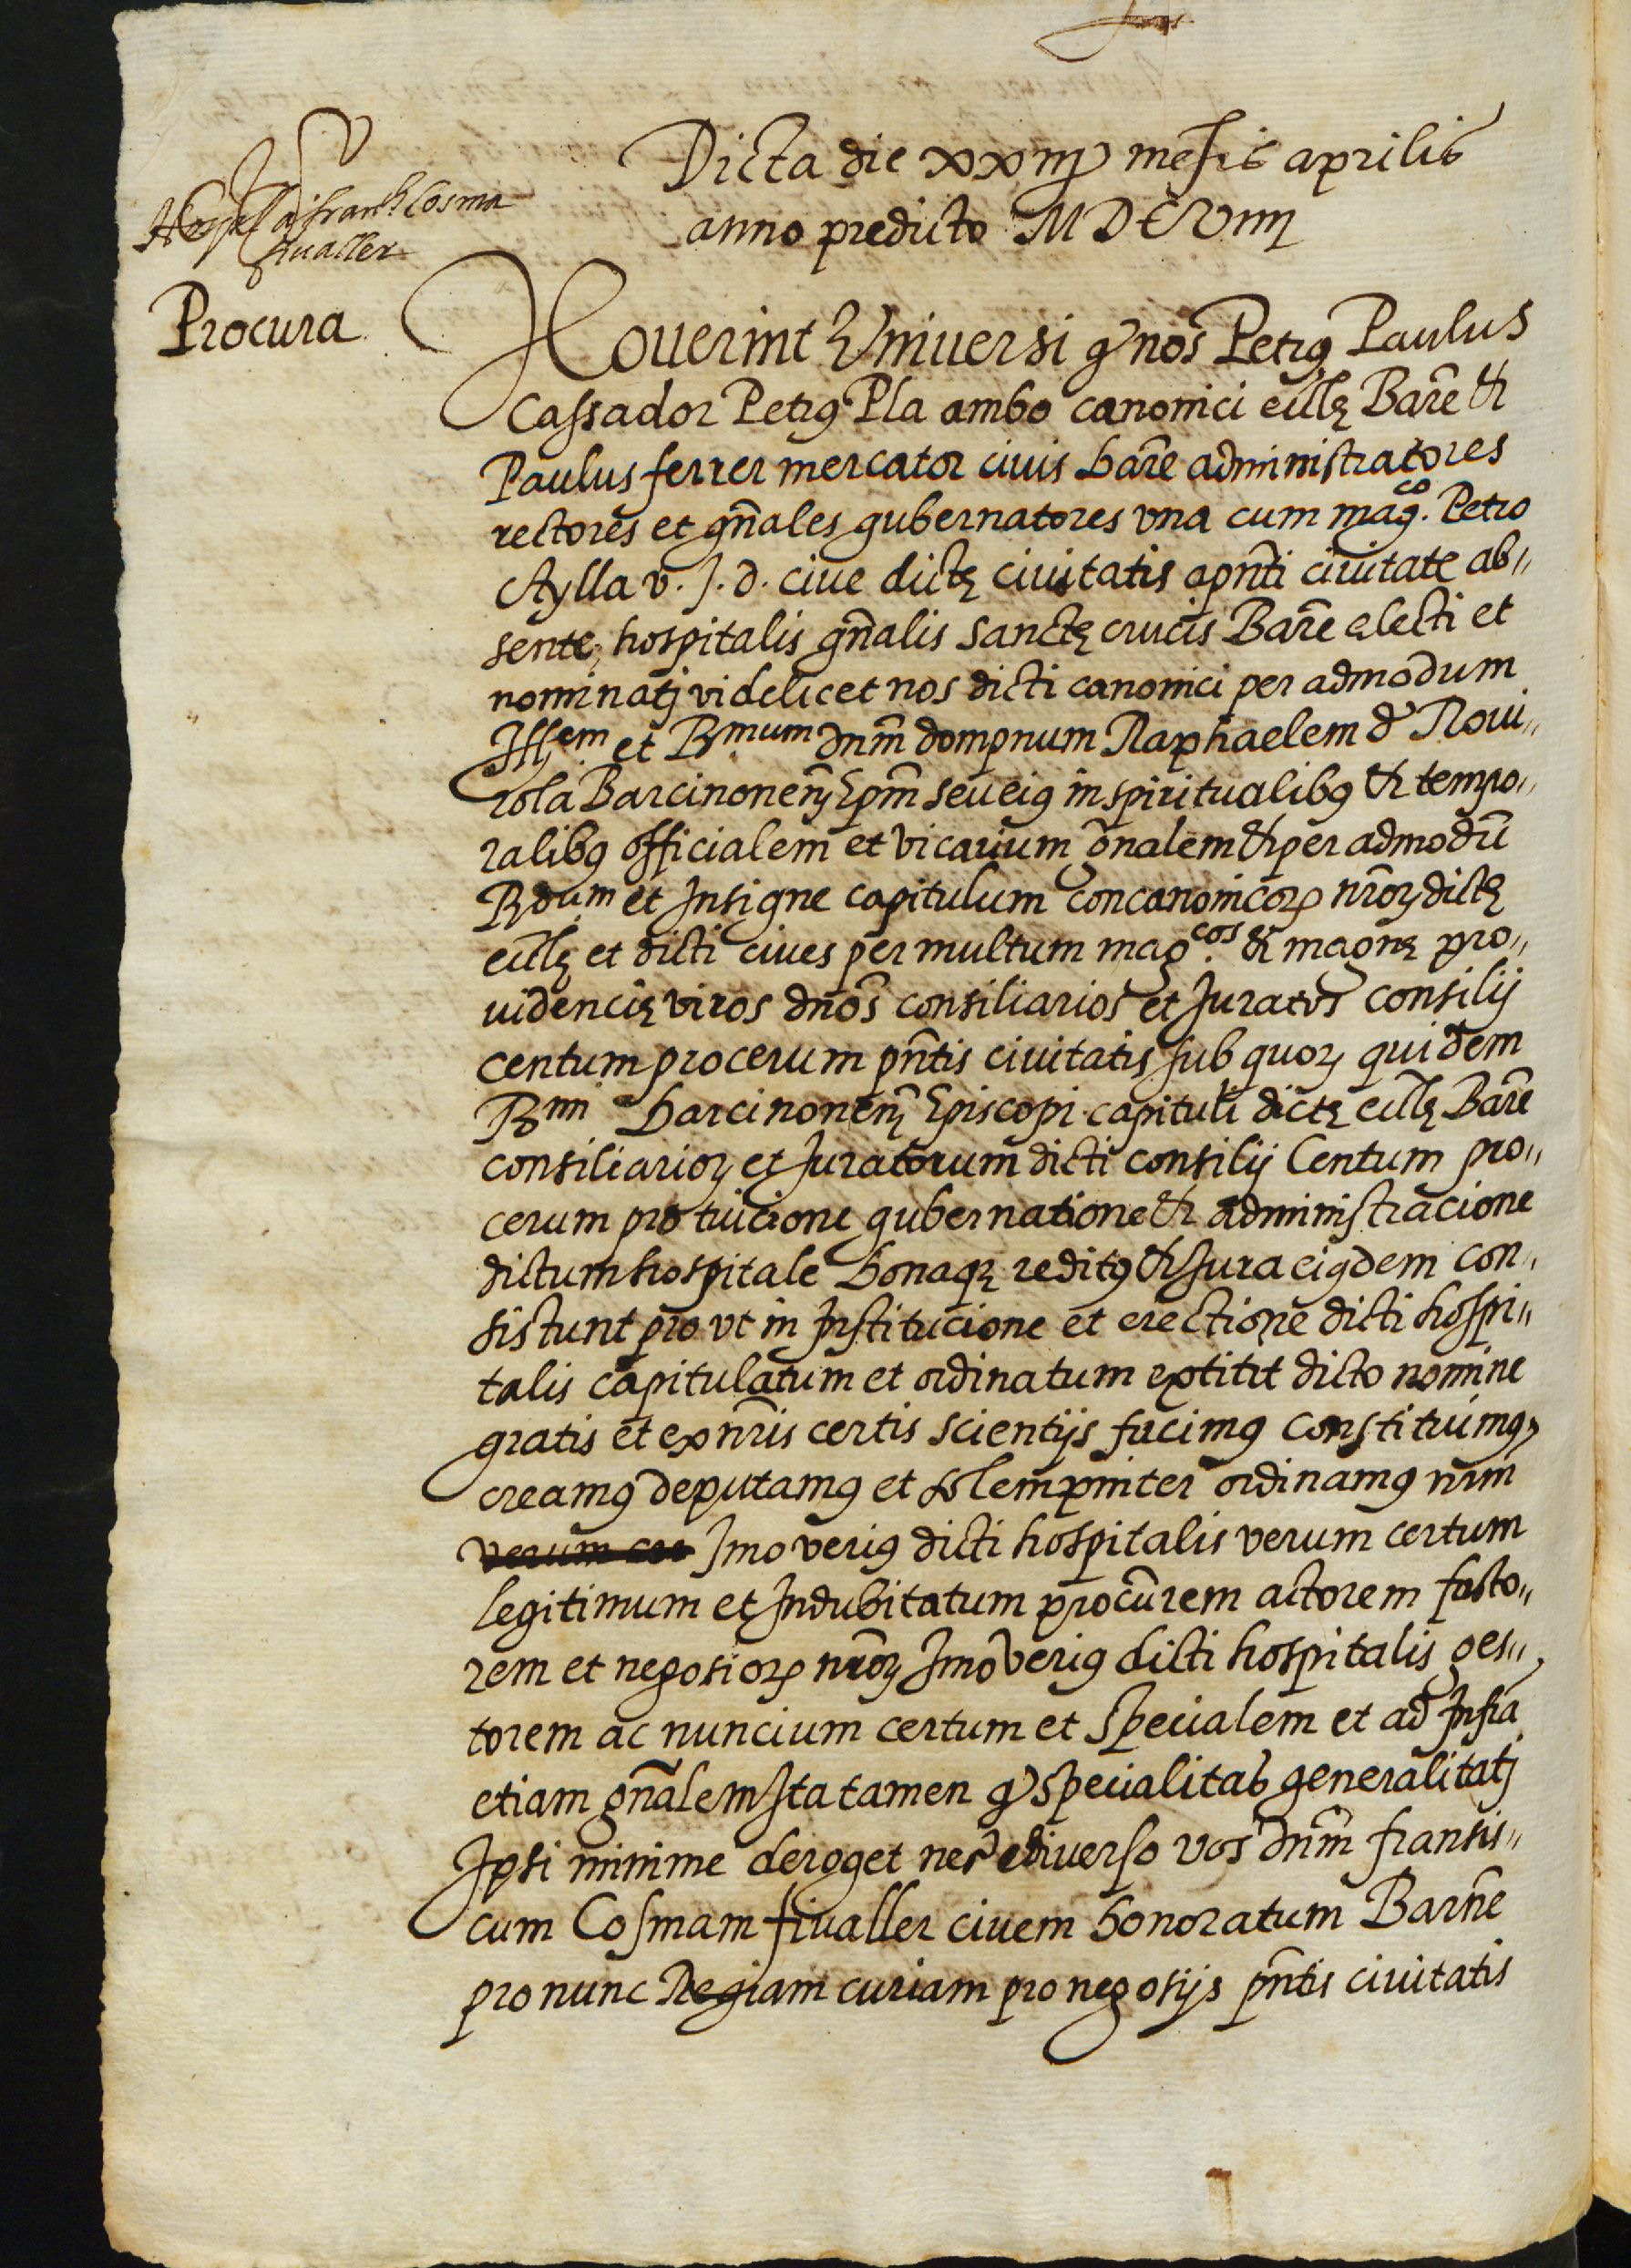 Dicta die xxiiij mēsis aprilis
anno predicto MDCVIIII
Hospel a fran.ch Cosma
fiualler
Procura
Nouerint Vniuersi q̄ nos Petrus Paulus
Cassador Petrus Pla ambo canonici ecclę Barn̄e et
Paulus ferrer mercator ciuis barn̄e administratores
rectores et gn̄ales gubernatores vna cum mag.co Petro
Aylla v. J. d. ciue dictę ciuitatis a pn̄ti ciuitate ab,,
sente, hospitalis gn̄alis sanctę crucis Barn̄e electi et
nominatj videlicet nos dicti canonici per admodum
Illem et Rmum dnm̄ dompnum Raphaelem d' Roui,,
rola Barcinonen̄ Epm̄ seu eius in spiritualibus et tempo,,
ralibus officialem et vicarium gn̄alem et per admodū
Rdum et Insigne capitulum concanonicorȝ nr̄orȝ dictę
ecclę et dicti ciues per multum mag.cos et magnę pro,,
uidencię viros dnōs consiliarios et Juratos consilij
centum procerum pn̄tis ciuitatis sub quorȝ quidem
Rmi barcinonen̄ Episcopi capituli dictę ecclę Barn̄e
consiliariorȝ et Juratorum dicti consilij Centum pro,,
cerum pro tuicione gubernatione et administracione
dictum hospitale bonaqȝ reditus et Jura eiusdem con,,
sistunt pro vt in Institucione et erectione dicti hospi,,
talis capitulatum et ordinatum extitit dicto nomine
gratis et ex nr̄is certis scientijs facimus constituimus
creamus deputamus et solempniter ordinamus nrm̄
verum cer Imo verius dicti hospitalis verum certum
legitimum et Indubitatum procūrem actorem facto,,
rem et negosiorȝ nr̄orȝ Imo verius dicti hospitalis ges,,
torem ac nuncium certum et specialem et ad Infra
etiam gn̄alem Ita tamen q̄ specialitas generalitatj
Ipsi minime deroget nec e diuerso vos dnm̄ fransis,,
cum Cosmam fiualler ciuem honoratum Barn̄e
pro nunc Regiam curiam pro negosijs pn̄tis ciuitatis